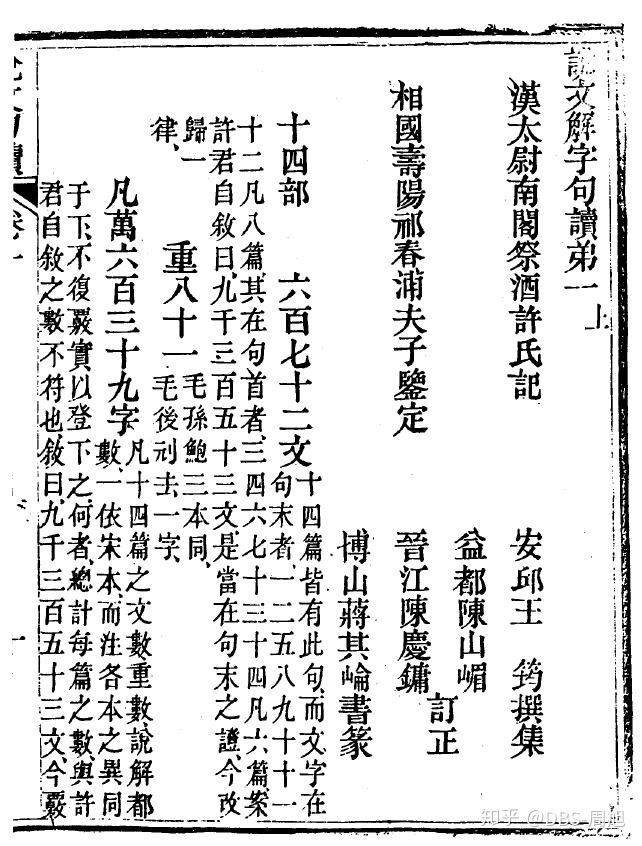 說文解字句讀弟一上
漢太尉南閣祭酒許氏記
安邱王 筠撰集
益都陳山嵋
相國壽陽祁春浦夫子鑒定
晉江陳慶鏞
訂正
博山蔣其崘書篆
十四部 六百七十二文
十四篇皆有此句、而文字在
句末者、一二五八九十十一
十二凡八篇、其在句首者、三四六七十三十四凡六篇、案
許君自敘曰、九千三百五十三文、是當在句末之證、今改
歸一
律、
重八十一
毛孫鮑三本同、
毛後刓去一字、
凡萬六百三十九字
凡十四篇之文數重數、說解都
數、一依宋本、而注各本之異同
于下、不復覈實以登下之、何者、總計每篇之數、與許
君自敘之數不符也、敘曰、九千三百五十三文、今覈
卷一
一
知乎 @DBS-周旭